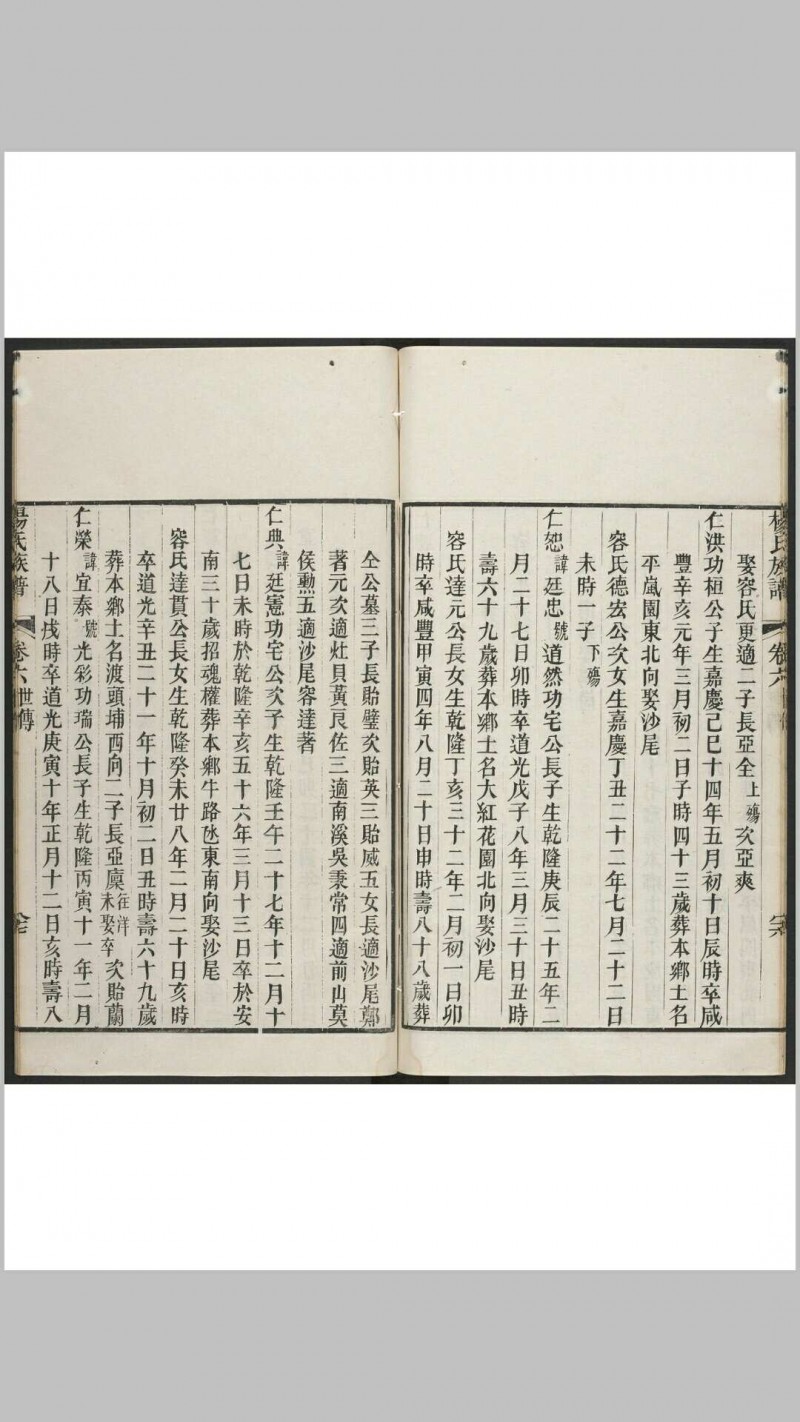 楊氏族譜 卷六 世傳
娶容氏更適二子長亞全上殤次亞爽
仁洪功桓公子生嘉慶己巳十四年五月初十日辰時卒咸
豐辛亥元年三月初二日子時四十三歲葬本鄉土名
平嵐園東北向娶沙尾
容氏德宏公次女生嘉慶丁丑二十二年七月二十二日
未時一子下殤
仁恕諱廷忠號道然功宅公長子生乾隆庚辰二十五年二
月二十七日卯時卒道光戊子八年三月三十日丑時
壽六十九歲葬本鄉土名大紅花園北向娶沙尾
容氏達元公長女生乾隆丁亥三十二年二月初一日卯
時卒咸豐甲寅四年八月二十日申時壽八十八歲葬
仝公墓三子長貽璧次貽英三貽威五女長適沙尾鄭
著元次適灶貝黃艮佐三適南溪吳秉常四適前山莫
侯勳五適沙尾容達著
仁典諱廷憲功宅公次子生乾隆壬午二十七年十二月十
七日未時於乾隆辛亥五十六年三月十三日卒於安
南三十歲招魂權葬本鄉牛路氹東南向娶沙尾
容氏達貫公長女生乾隆癸未廿八年二月二十日亥時
卒道光辛丑二十一年十月初二日丑時壽六十九歲
葬本鄉土名渡頭埔西向二子長亞廩往洋未娶卒次貽蘭
仁榮諱宜泰號光彩功瑞公長子生乾隆丙寅十一年二月
十八日戌時卒道光庚寅十年正月十二日亥時壽八
楊氏族譜 卷六 世傳